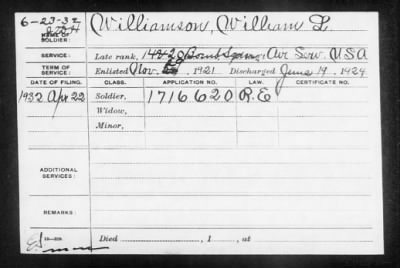 6-23-32
NAME OF SOLDIER: Williamson, William L.
SERVICE: Late rank, 14 & 20 Bomb Sqdns, Air Serv. USA
TERM OF SERVICE: Enlisted Nov. 1921 Discharged June 19, 1924
DATE OF FILING. CLASS. APPLICATION NO. LAW. CERTIFICATE NO.
1932 Apr 22 Soldier, 1716620 R.E
Widow,
Minor,
ADDITIONAL SERVICES:
REMARKS:
Died , 1 , at